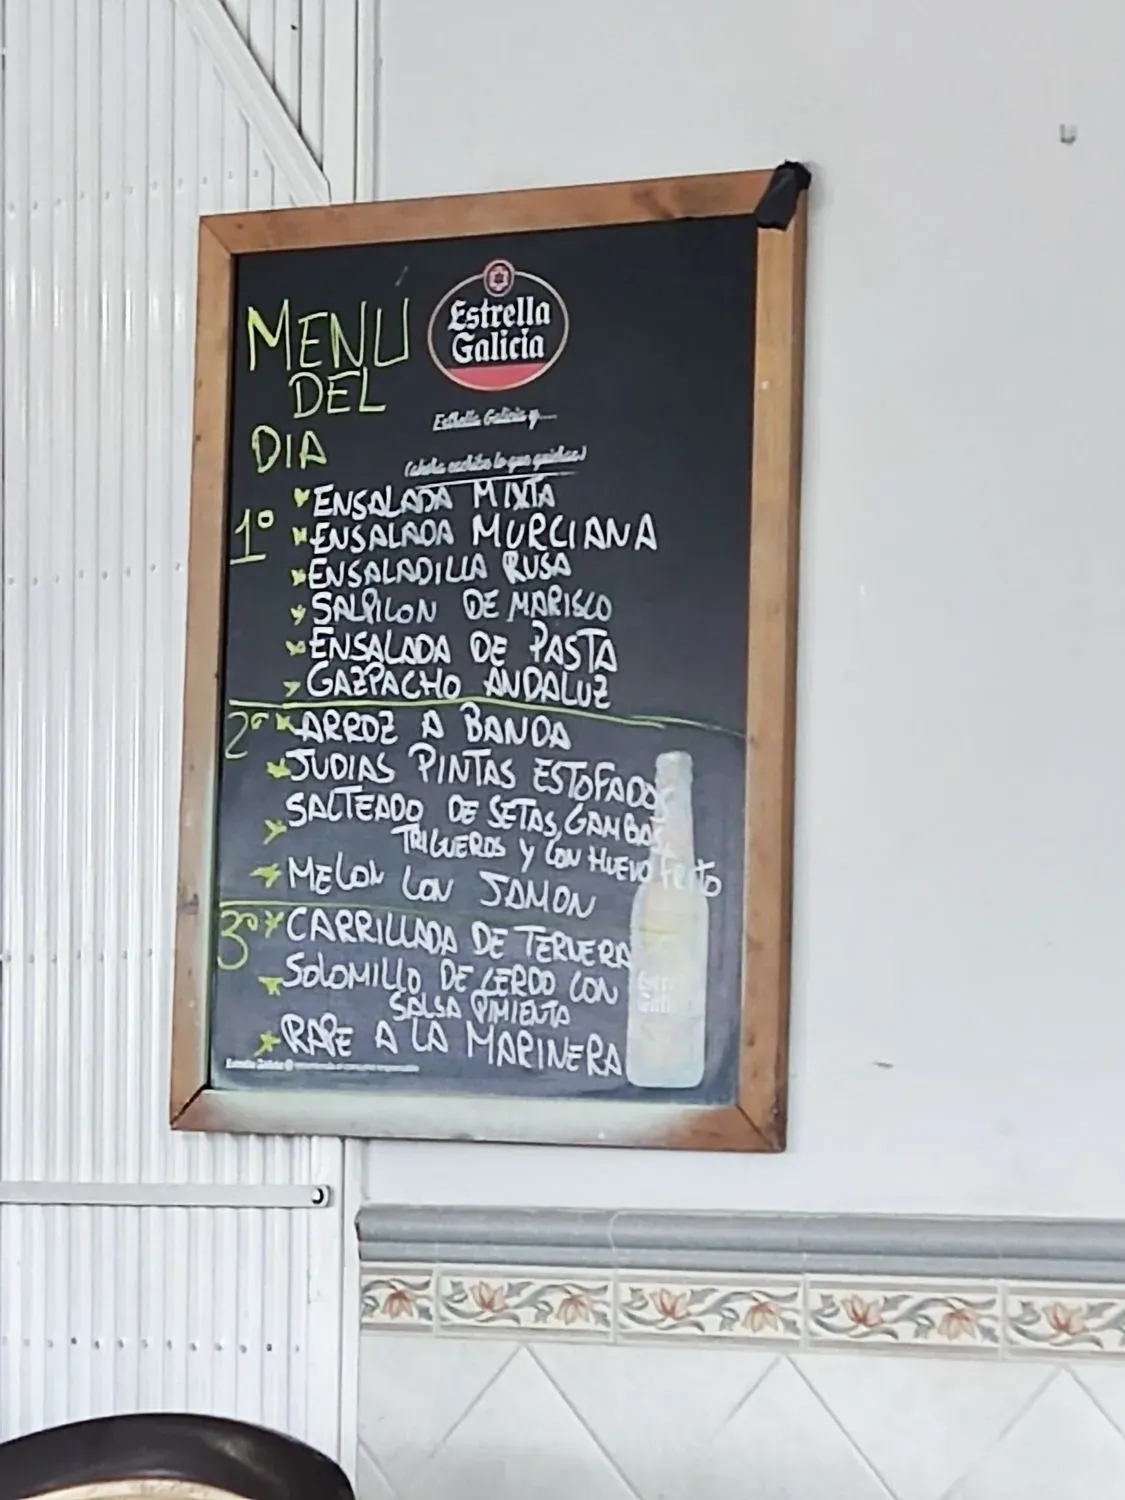 MENU
DEL
DIA
Estrella
Galicia
Estrella Galicia y....
(ahora escribe lo que quieras)
1º
ENSALADA MIXTA
ENSALADA MURCIANA
ENSALADILLA RUSA
SALPICON DE MARISCO
ENSALADA DE PASTA
GAZPACHO ANDALUZ
2º ARROZ A BANDA
JUDIAS PINTAS ESTOFADOS
SALTEADO DE SETAS, GAMBAS,
TRIGUEROS Y CON HUEVO FRITO
MELON CON JAMON
3º CARRILLADA DE TERNERA
SOLOMILLO DE CERDO CON
SALSA PIMIENTA
RAPE A LA MARINERA
Estrella Galicia recomienda el consumo responsable